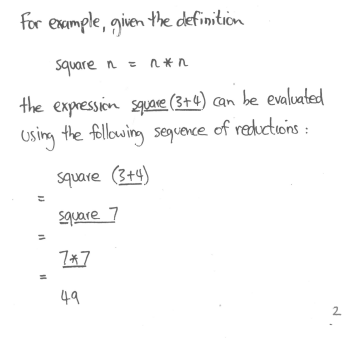 For example, given the definition
square n = n * n
the expression square (3+4) can be evaluated
using the following sequence of reductions :
square (3+4)
=
square 7
=
7*7
=
49
2